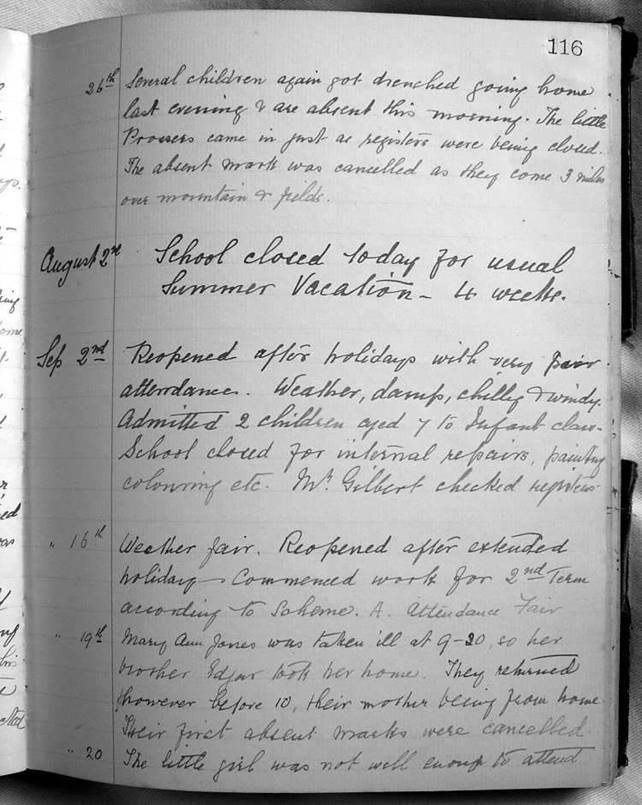 116
26th Several children again got drenched going home
last evening & are absent this morning. The little
Prossers came in just as registers were being closed.
The absent mark was cancelled as they come 3 miles
over mountain & fields.
August 2nd School closed today for usual
Summer Vacation - 4 weeks.
Sep 2nd Reopened after holidays with very poor
attendance. Weather, damp, chilly & windy.
Admitted 2 children aged 7 to Infant class.
School closed for internal repairs, painting
colouring etc. Mr. Gilbert checked registers
" 16th Weather fair. Reopened after extended
holiday - Commenced work for 2nd Term
according to Scheme. A. Attendance Fair
" 19th Mary Ann Jones was taken ill at 9-20, so her
brother Edgar took her home. They returned
however before 10, their mother being from home.
Their first absent marks were cancelled.
" 20 The little girl was not well enoug to attend